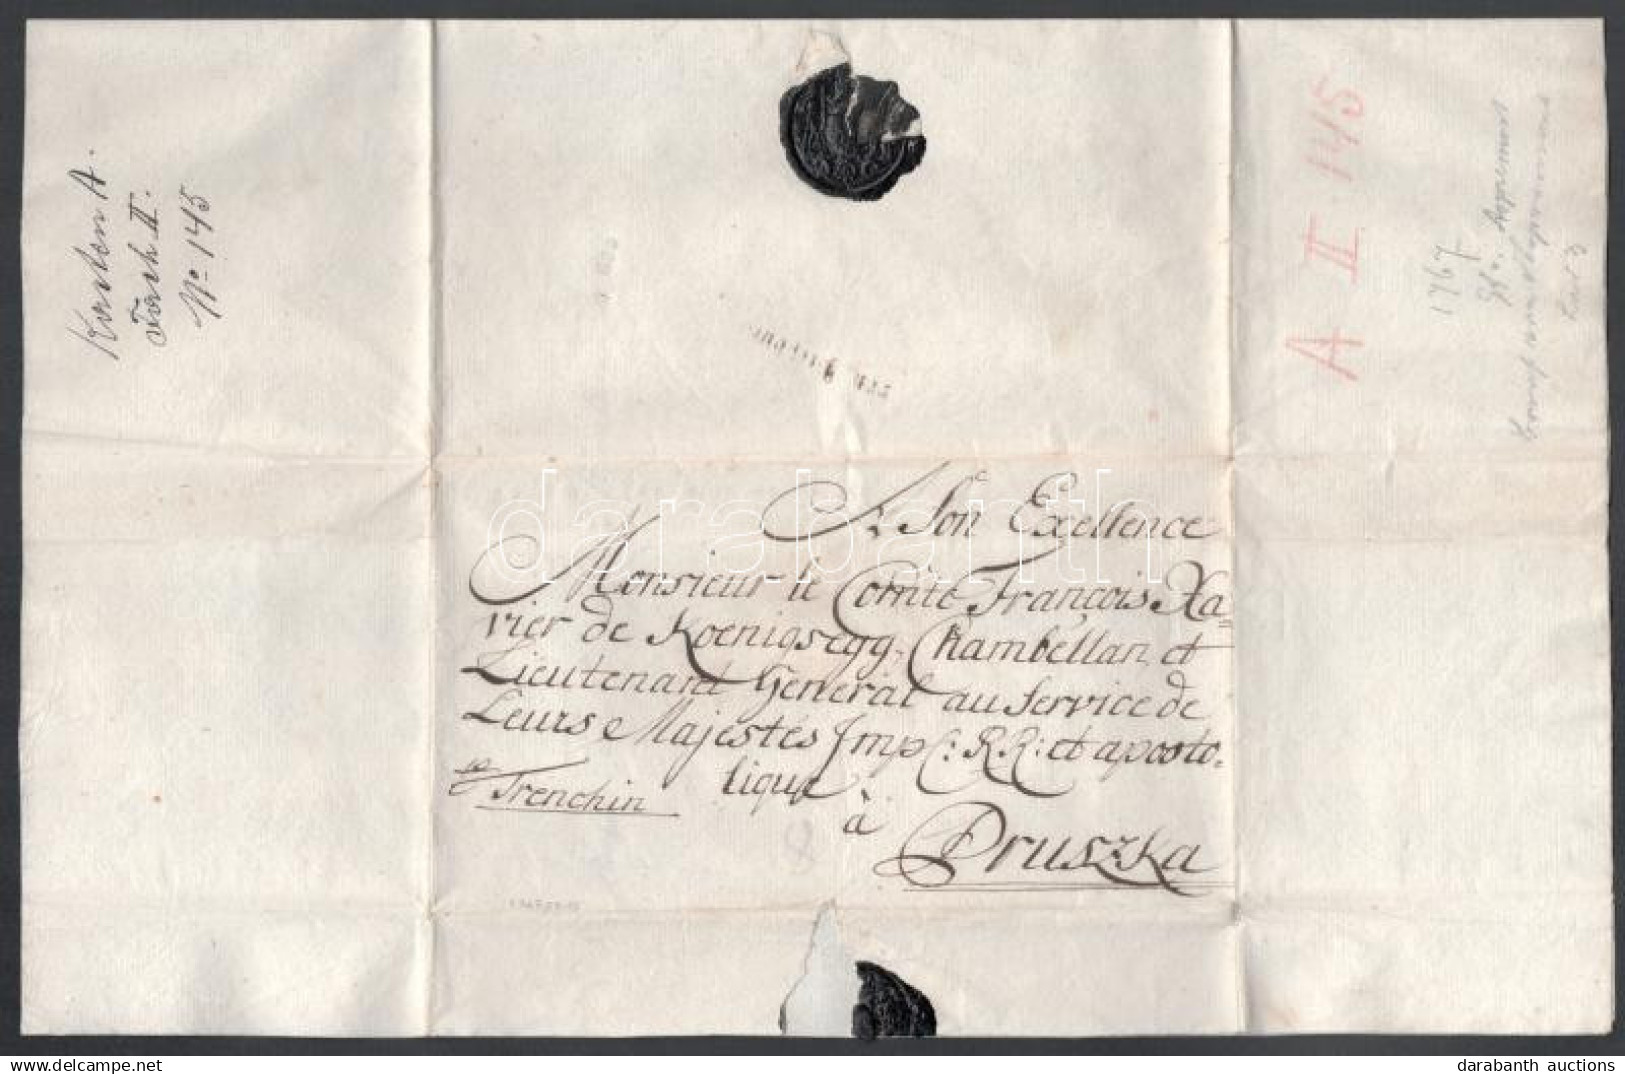 Kasten A.
Fach II.
No 145
A II 145
1767
A Son Exellence
Monsieur le Comte François Xa=
vier de Koenigsegg, Chambellan et
Lieutenant General au Service de
Leurs Majestés Imp: R.R: et aposto-
lique
p Trenchin
à
Pruszka
darabanth
darabanth auctions